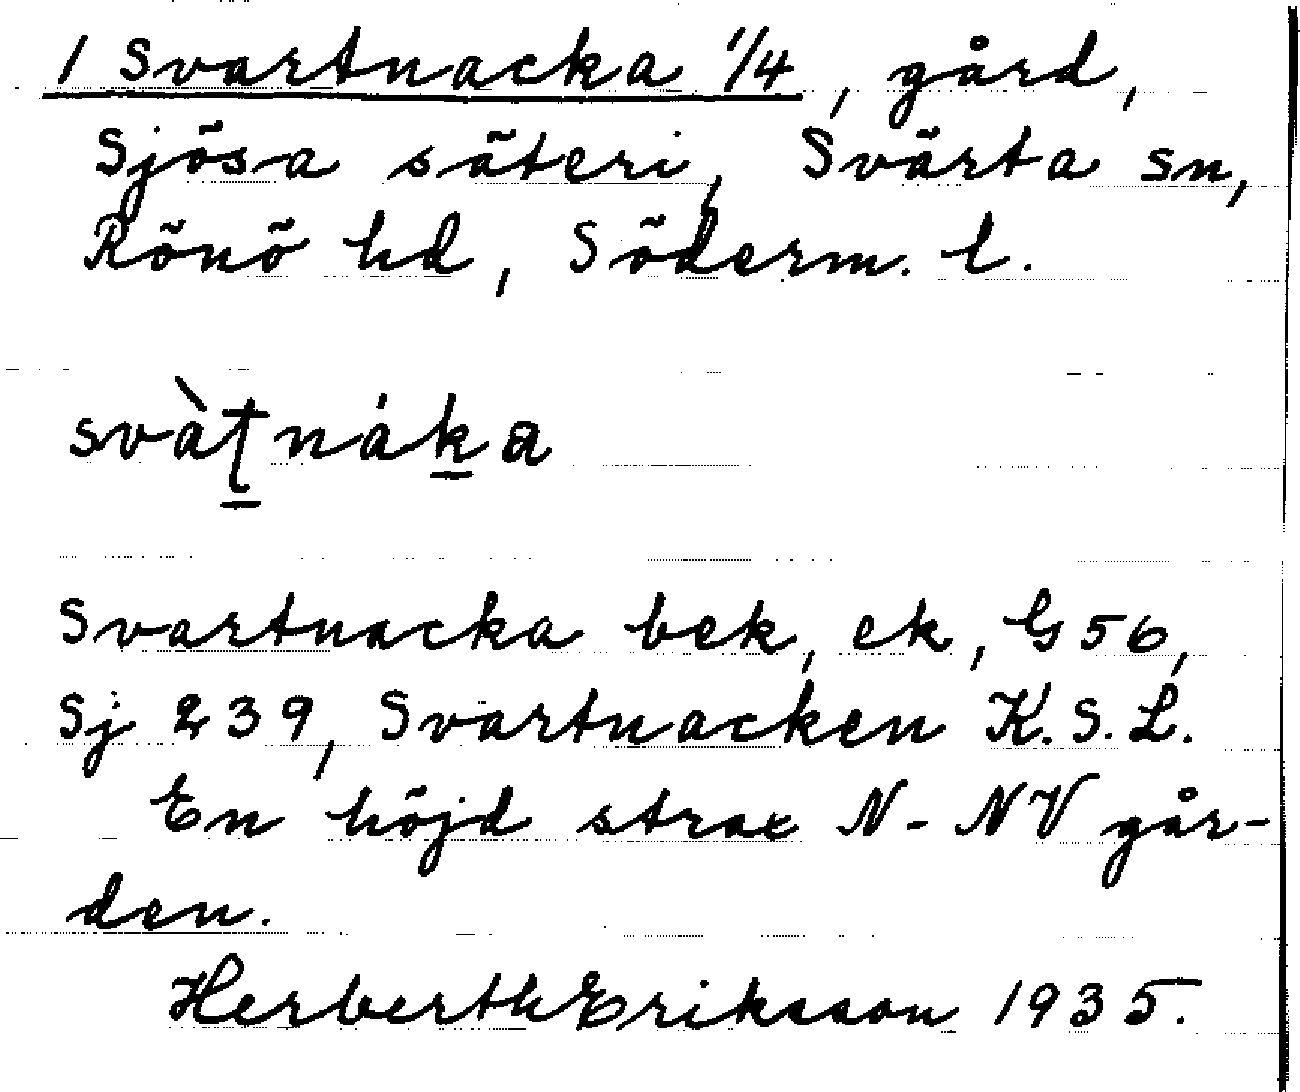 1 Svartnacka 1/4, gård,
Sjösa säteri, Svärta sn,
Rönö hd, Söderm. l.
svàt̠nák̠a
Svartnacka bek, ek, G 56,
Sj 239, Svartnacken K.S.L.
En höjd strax N-NV går-
den.
Herberth Eriksson 1935.